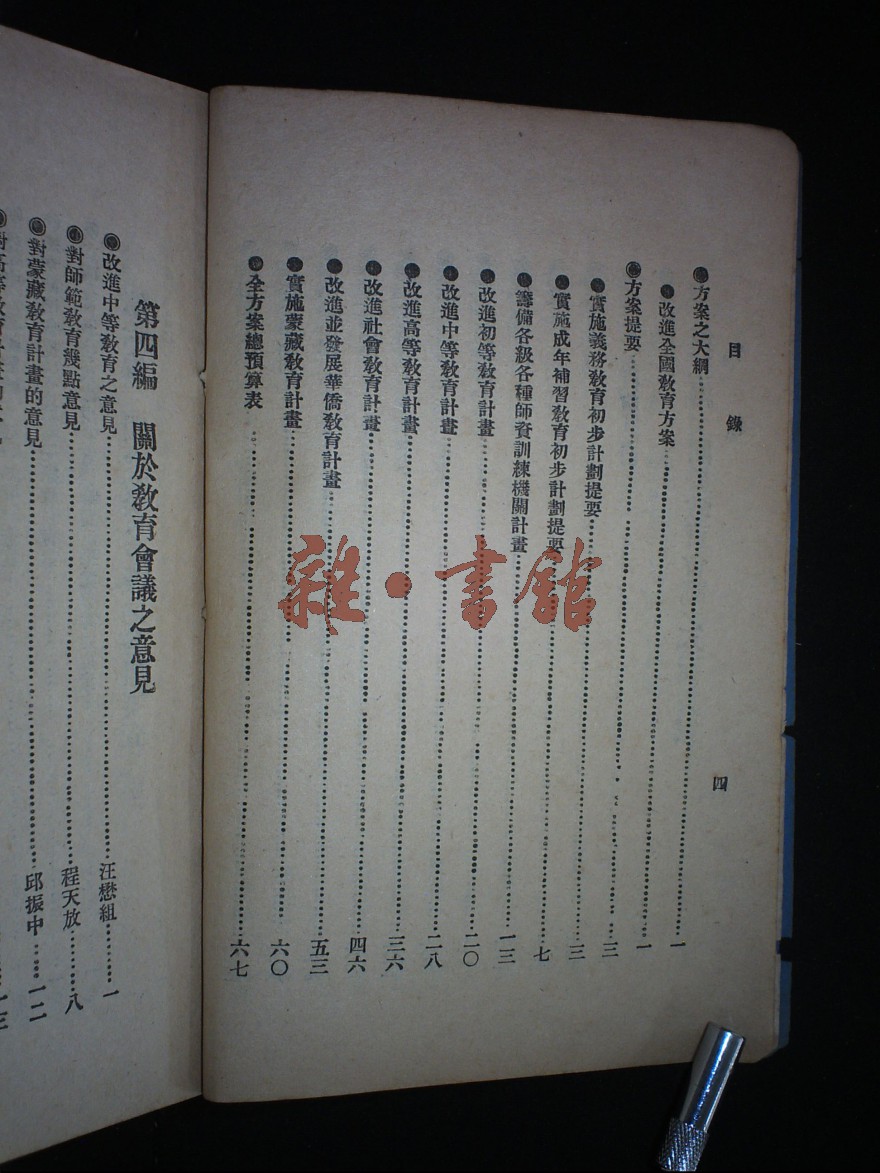 目錄
四
◉方案之大綱………………一
●改進全國教育方案………………一
◉方案提要………………三
●實施義務教育初步計劃提要………………三
●實施成年補習教育初步計劃提要………………七
●籌備各級各種師資訓練機關計畫………………一三
●改進初等教育計畫………………二〇
●改進中等教育計畫………………二八
●改進高等教育計畫………………三六
●改進社會教育計畫………………四六
●改進並發展華僑教育計畫………………五三
●實施蒙藏教育計畫………………六〇
●全方案總預算表………………六七
第四編 關於教育會議之意見
◉改進中等教育之意見………………汪懋組………一
◉對師範教育幾點意見………………程天放………八
◉對蒙藏教育計畫的意見………………邱振中……一二
◉對高等教育
雜·書館